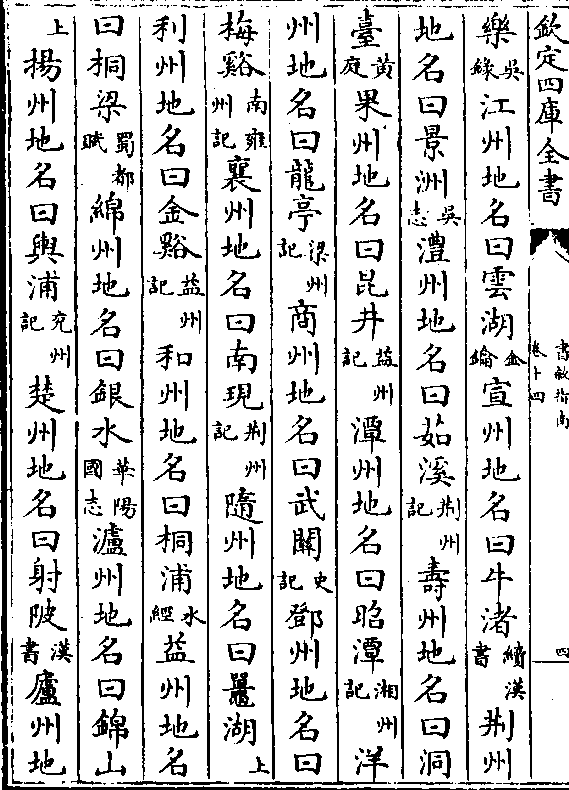 欽定四庫全書 書敘指南 卷十四 四
樂吳錄江州地名曰雲湖金鑰宣州地名曰牛渚續漢書荆州
地名曰景洲吳志澧州地名曰茹溪荆州記壽州地名曰洞
臺黄庭果州地名曰昆井益州記潭州地名曰昭潭湘州記洋
州地名曰龍亭梁州記商州地名曰武關史記鄧州地名曰
梅谿南雍州記襄州地名曰南現荆州記隨州地名曰鼉湖上
利州地名曰金谿益州記和州地名曰桐浦水經益州地名
曰桐梁蜀都賦綿州地名曰銀水華陽國志瀘州地名曰錦山
上揚州地名曰輿浦兖州記楚州地名曰射陂漢書廬州地